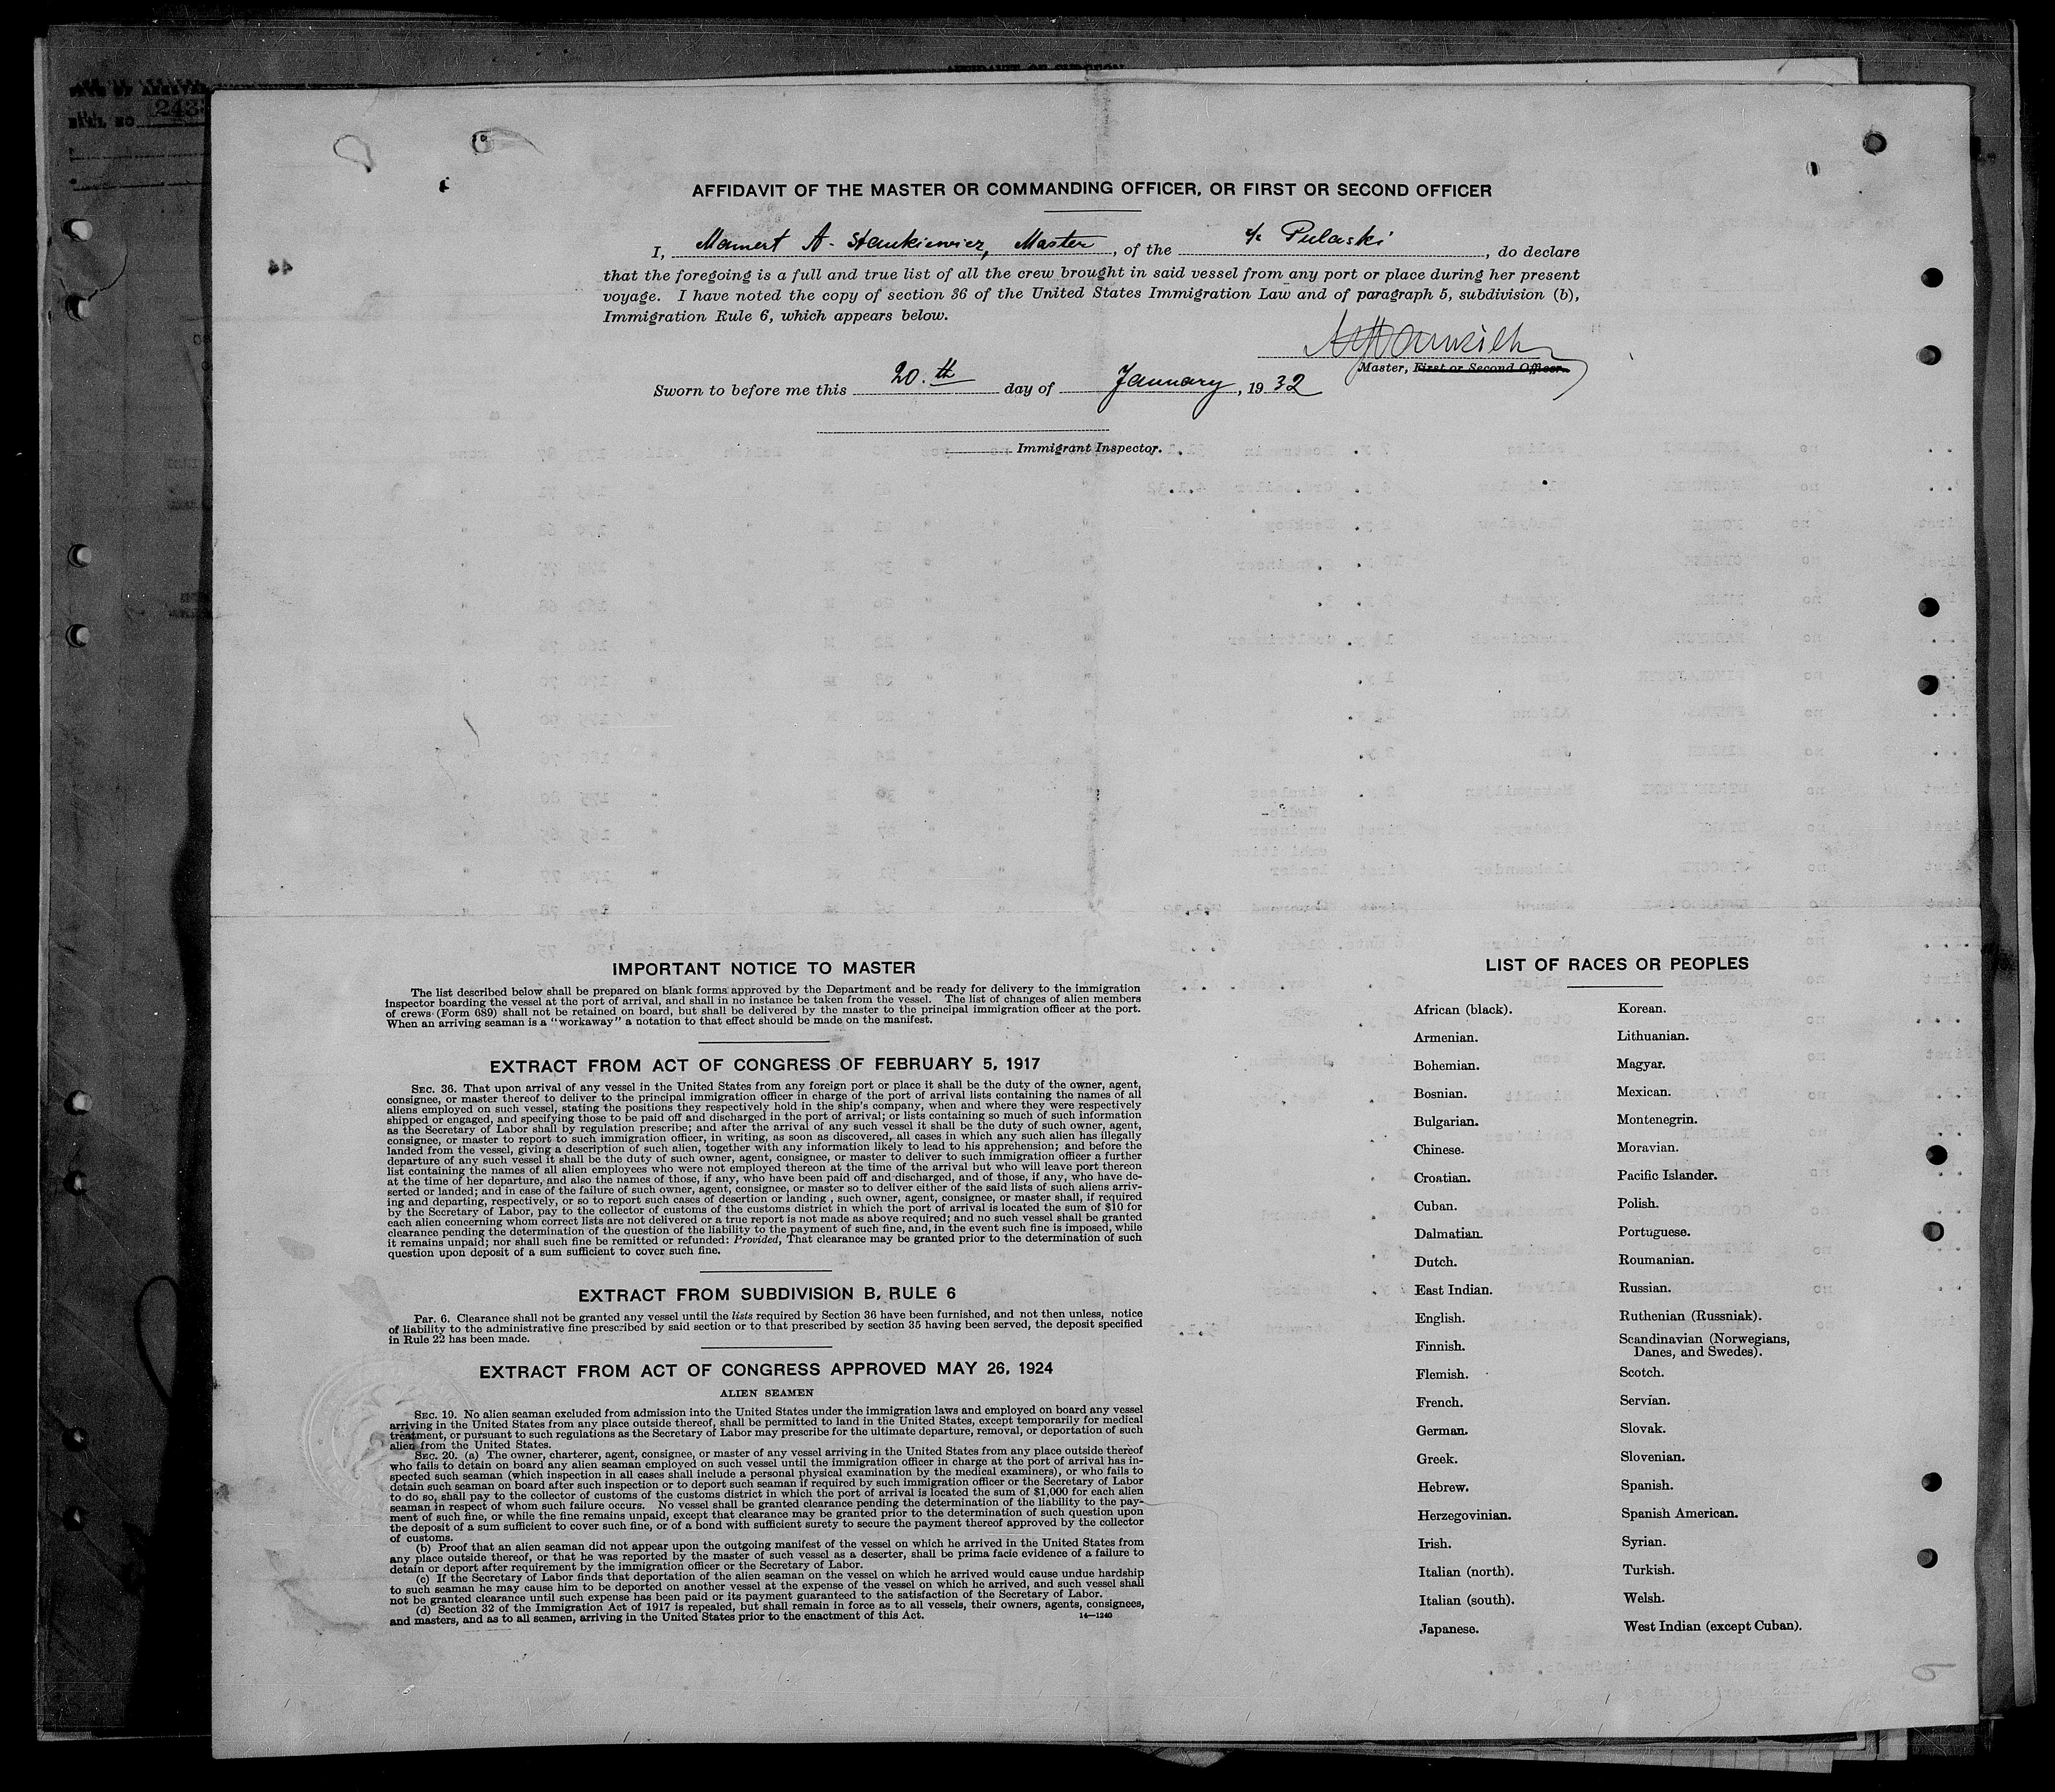 AFFIDAVIT OF SURGEON
243
AFFIDAVIT OF THE MASTER OR COMMANDING OFFICER, OR FIRST OR SECOND OFFICER
I, Mamert A. Stankiewicz, Master, of the s/s Pulaski, do declare
that the foregoing is a full and true list of all the crew brought in said vessel from any port or place during her present
voyage. I have noted the copy of section 36 of the United States Immigration Law and of paragraph 5, subdivision (b),
Immigration Rule 6, which appears below.
Master, First or Second Officer.
Sworn to before me this 20.th day of January, 1932
Immigrant Inspector.
IMPORTANT NOTICE TO MASTER
The list described below shall be prepared on blank forms approved by the Department and be ready for delivery to the immigration
inspector boarding the vessel at the port of arrival, and shall in no instance be taken from the vessel. The list of changes of alien members
of crews (Form 689) shall not be retained on board, but shall be delivered by the master to the principal immigration officer at the port.
When an arriving seaman is a "workaway" a notation to that effect should be made on the manifest.
EXTRACT FROM ACT OF CONGRESS OF FEBRUARY 5, 1917
SEC. 36. That upon arrival of any vessel in the United States from any foreign port or place it shall be the duty of the owner, agent,
consignee, or master thereof to deliver to the principal immigration officer in charge of the port of arrival lists containing the names of all
aliens employed on such vessel, stating the positions they respectively hold in the ship's company, when and where they were respectively
shipped or engaged, and specifying those to be paid off and discharged in the port of arrival; or lists containing so much of such information
as the Secretary of Labor shall by regulation prescribe; and after the arrival of any such vessel it shall be the duty of such owner, agent,
consignee, or master to report to such immigration officer, in writing, as soon as discovered, all cases in which any such alien has illegally
landed from the vessel, giving a description of such alien, together with any information likely to lead to his apprehension; and before the
departure of any such vessel it shall be the duty of such owner, agent, consignee, or master to deliver to such immigration officer a further
list containing the names of all alien employees who were not employed thereon at the time of the arrival but who will leave port thereon
at the time of her departure, and also the names of those, if any, who have been paid off and discharged, and of those, if any, who have de-
serted or landed; and in case of the failure of such owner, agent, consignee, or master so to deliver either of the said lists of such aliens arriv-
ing and departing, respectively, or so to report such cases of desertion or landing , such owner, agent, consignee, or master shall, if required
by the Secretary of Labor, pay to the collector of customs of the customs district in which the port of arrival is located the sum of $10 for
each alien concerning whom correct lists are not delivered or a true report is not made as above required; and no such vessel shall be granted
clearance pending the determination of the question of the liability to the payment of such fine, and, in the event such fine is imposed, while
it remains unpaid; nor shall such fine be remitted or refunded: Provided, That clearance may be granted prior to the determination of such
question upon deposit of a sum sufficient to cover such fine.
EXTRACT FROM SUBDIVISION B, RULE 6
Par. 6. Clearance shall not be granted any vessel until the lists required by Section 36 have been furnished, and not then unless, notice
of liability to the administrative fine prescribed by said section or to that prescribed by section 35 having been served, the deposit specified
in Rule 22 has been made.
EXTRACT FROM ACT OF CONGRESS APPROVED MAY 26, 1924
ALIEN SEAMEN
SEC. 19. No alien seaman excluded from admission into the United States under the immigration laws and employed on board any vessel
arriving in the United States from any place outside thereof, shall be permitted to land in the United States, except temporarily for medical
treatment, or pursuant to such regulations as the Secretary of Labor may prescribe for the ultimate departure, removal, or deportation of such
alien from the United States.
SEC. 20. (a) The owner, charterer, agent, consignee, or master of any vessel arriving in the United States from any place outside thereof
who fails to detain on board any alien seaman employed on such vessel until the immigration officer in charge at the port of arrival has in-
spected such seaman (which inspection in all cases shall include a personal physical examination by the medical examiners), or who fails to
detain such seaman on board after such inspection or to deport such seaman if required by such immigration officer or the Secretary of Labor
to do so, shall pay to the collector of customs of the customs district in which the port of arrival is located the sum of $1,000 for each alien
seaman in respect of whom such failure occurs. No vessel shall be granted clearance pending the determination of the liability to the pay-
ment of such fine, or while the fine remains unpaid, except that clearance may be granted prior to the determination of such question upon
the deposit of a sum sufficient to cover such fine, or of a bond with sufficient surety to secure the payment thereof approved by the collector
of customs.
(b) Proof that an alien seaman did not appear upon the outgoing manifest of the vessel on which he arrived in the United States from
any place outside thereof, or that he was reported by the master of such vessel as a deserter, shall be prima facie evidence of a failure to
detain or deport after requirement by the immigration officer or the Secretary of Labor.
(c) If the Secretary of Labor finds that deportation of the alien seaman on the vessel on which he arrived would cause undue hardship
to such seaman he may cause him to be deported on another vessel at the expense of the vessel on which he arrived, and such vessel shall
not be granted clearance until such expense has been paid or its payment guaranteed to the satisfaction of the Secretary of Labor.
(d) Section 32 of the Immigration Act of 1917 is repealed, but shall remain in force as to all vessels, their owners, agents, consignees,
and masters, and as to all seamen, arriving in the United States prior to the enactment of this Act.
14—1240
LIST OF RACES OR PEOPLES
African (black).
Armenian.
Bohemian.
Bosnian.
Bulgarian.
Chinese.
Croatian.
Cuban.
Dalmatian.
Dutch.
East Indian.
English.
Finnish.
Flemish.
French.
German.
Greek.
Hebrew.
Herzegovinian.
Irish.
Italian (north).
Italian (south).
Japanese.
Korean.
Lithuanian.
Magyar.
Mexican.
Montenegrin.
Moravian.
Pacific Islander.
Polish.
Portuguese.
Roumanian.
Russian.
Ruthenian (Russniak).
Scandinavian (Norwegians,
Danes, and Swedes).
Scotch.
Servian.
Slovak.
Slovenian.
Spanish.
Spanish American.
Syrian.
Turkish.
Welsh.
West Indian (except Cuban).